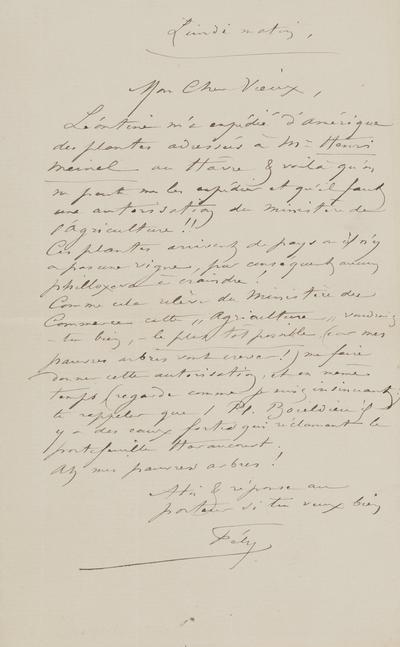 Lundi matin,
Mon Cher Vieux,
Léontine m'a expédié d'Amérique
des plantes adressées à Mr Henri
Mainel au Havre & voilà qu'on
ne peut me les expédier et qu'il faut
une autorisation du Ministère de
l'Agriculture !!
Ces plantes arrivent de pays où il n'y
a pas une vigne, par conséquent aucun
phylloxera à craindre !
Comme cela relève du Ministère du
Commerce cette „Agriculture„ voudrais
-tu bien, - le plus tôt possible (car mes
pauvres arbres vont crever !) me faire
donner cette autorisation, et en même
temps (regarde comme je suis insinuant)
te rappeler que 1 Pl. Boïeldieu il
y a des eaux fortes qui réclament le
portefeuille Haraucourt.
Ah mes pauvres arbres !
à toi & réponse au
porteur si tu veux bien
Fély